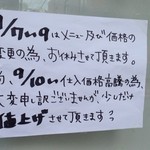 9/7.8.9はメニュー及び価格の
変更の為、お休みさせて頂きます。
尚、9/10〜い仕入価格高騰の為、
大変申し訳ございませんが、少しだけ
値上げさせて頂きますっ